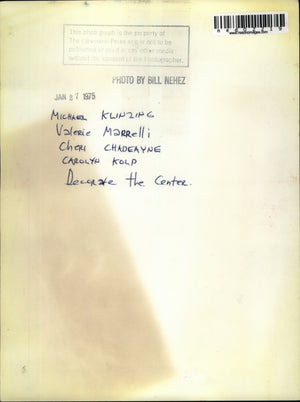 This photograph is the property of
The Cleveland Press and is not to be
published or used in any other media
without the consent of the Photographer.
PHOTO BY BILL NEHEZ
JAN 27 1975
MICHAEL KLINZING
Valerie Marrelli
CHERI CHADEAYNE
CAROLYN KOLP
Decorate the Center.